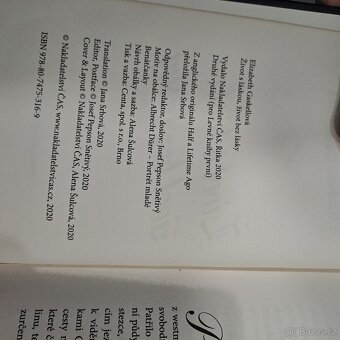 Elizabeth Gaskellová
Život s láskou, život bez lásky
Vydalo Nakladatelství ČAS, Řitka 2020
Druhé vydání (pro Levné knihy první)
Z anglického originálu Half a Lifetime Ago
přeložila Jana Srbová
Odpovědný redaktor, doslov: Josef Pepson Snětivý
Motiv na obálce: Albrecht Dürer – Portrét mladé
Benátčanky
Návrh obálky a sazba: Alena Šulcová
Tisk a vazba: Centa, spol. s r.o., Brno
Translation © Jana Srbová, 2020
Editor, Postface © Josef Pepson Snětivý, 2020
Cover & Layout © Nakladatelství ČAS, Alena Šulcová, 2020
© Nakladatelství ČAS, www.nakladatelstvicas.cz, 2020
ISBN 978-80-7475-316-9
z westm
svobod
ní půdy
Patřilo
stezce,
k vidě
cím je
kami C
cesty n
které č
linu, te
zurče